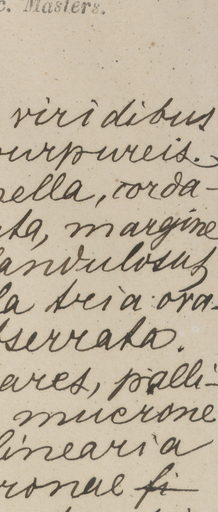 c. Masters.
viridibus
purpureis.
nella, corda-
ata, margine
landulosus
la tria ova-
bserrata.
ares, palli-
mucrone
linearia
ronae fi